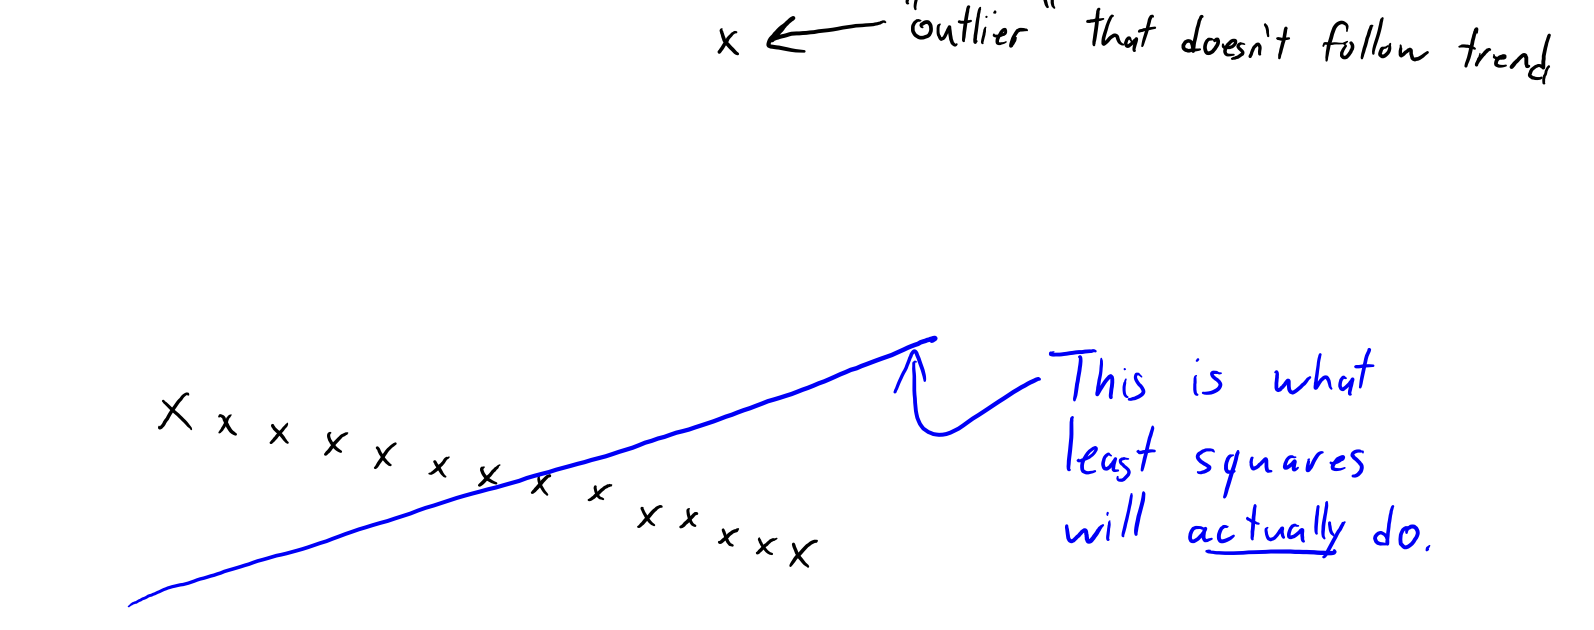 "outlier" that doesn't follow trend
This is what
least squares
will actually do.